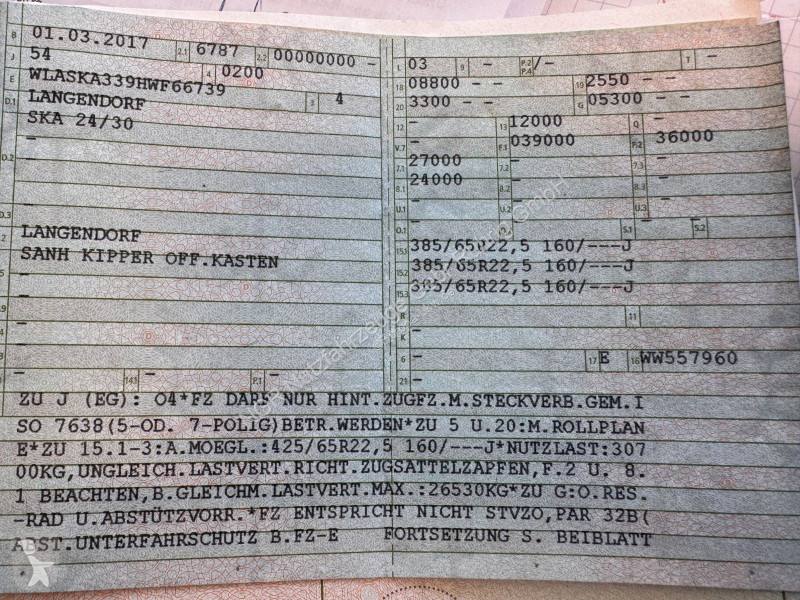 B 01.03.2017 2.1 6787 2.2 00000000 -
J 54 4 0200
E WLASKA339HWF66739 3 4
D.1 LANGENDORF
SKA 24/30
-
D.2 -
-
D.3 -
2 LANGENDORF
5 SANH KIPPER OFF.KASTEN
-
-
-
-
- 14.1 - P.1 -
L 03 9 - P.2 P.4 /- T -
18 08800 - - 19 2550 - -
20 3300 - - G 05300 - -
12 - 13 12000 Q -
V.7 - F.1 039000 F.2 36000
7.1 27000 7.2 - 7.3 -
8.1 24000 8.2 - 8.3 -
U.1 - U.2 - U.3 -
O.1 - O.2 - S.1 - S.2 -
15.1 385/65R22,5 160/---J
15.2 385/65R22,5 160/---J
15.3 385/65R22,5 160/---J
R - 11 -
K -
6 - 17 E 16 WW557960
21 -
ZU J (EG): O4*FZ DARF NUR HINT.ZUGFZ.M.STECKVERB.GEM.I
SO 7638(5-OD. 7-POLIG)BETR.WERDEN*ZU 5 U.20:M.ROLLPLAN
E*ZU 15.1-3:A.MOEGL.:425/65R22,5 160/---J*NUTZLAST:307
00KG,UNGLEICH.LASTVERT.RICHT.ZUGSATTELZAPFEN,F.2 U. 8.
1 BEACHTEN,B.GLEICHM.LASTVERT.MAX.:26530KG*ZU G:O.RES.
-RAD U.ABSTÜTZVORR.*FZ ENTSPRICHT NICHT STVZO,PAR 32B(
ABST.UNTERFAHRSCHUTZ B.FZ-E FORTSETZUNG S. BEIBLATT